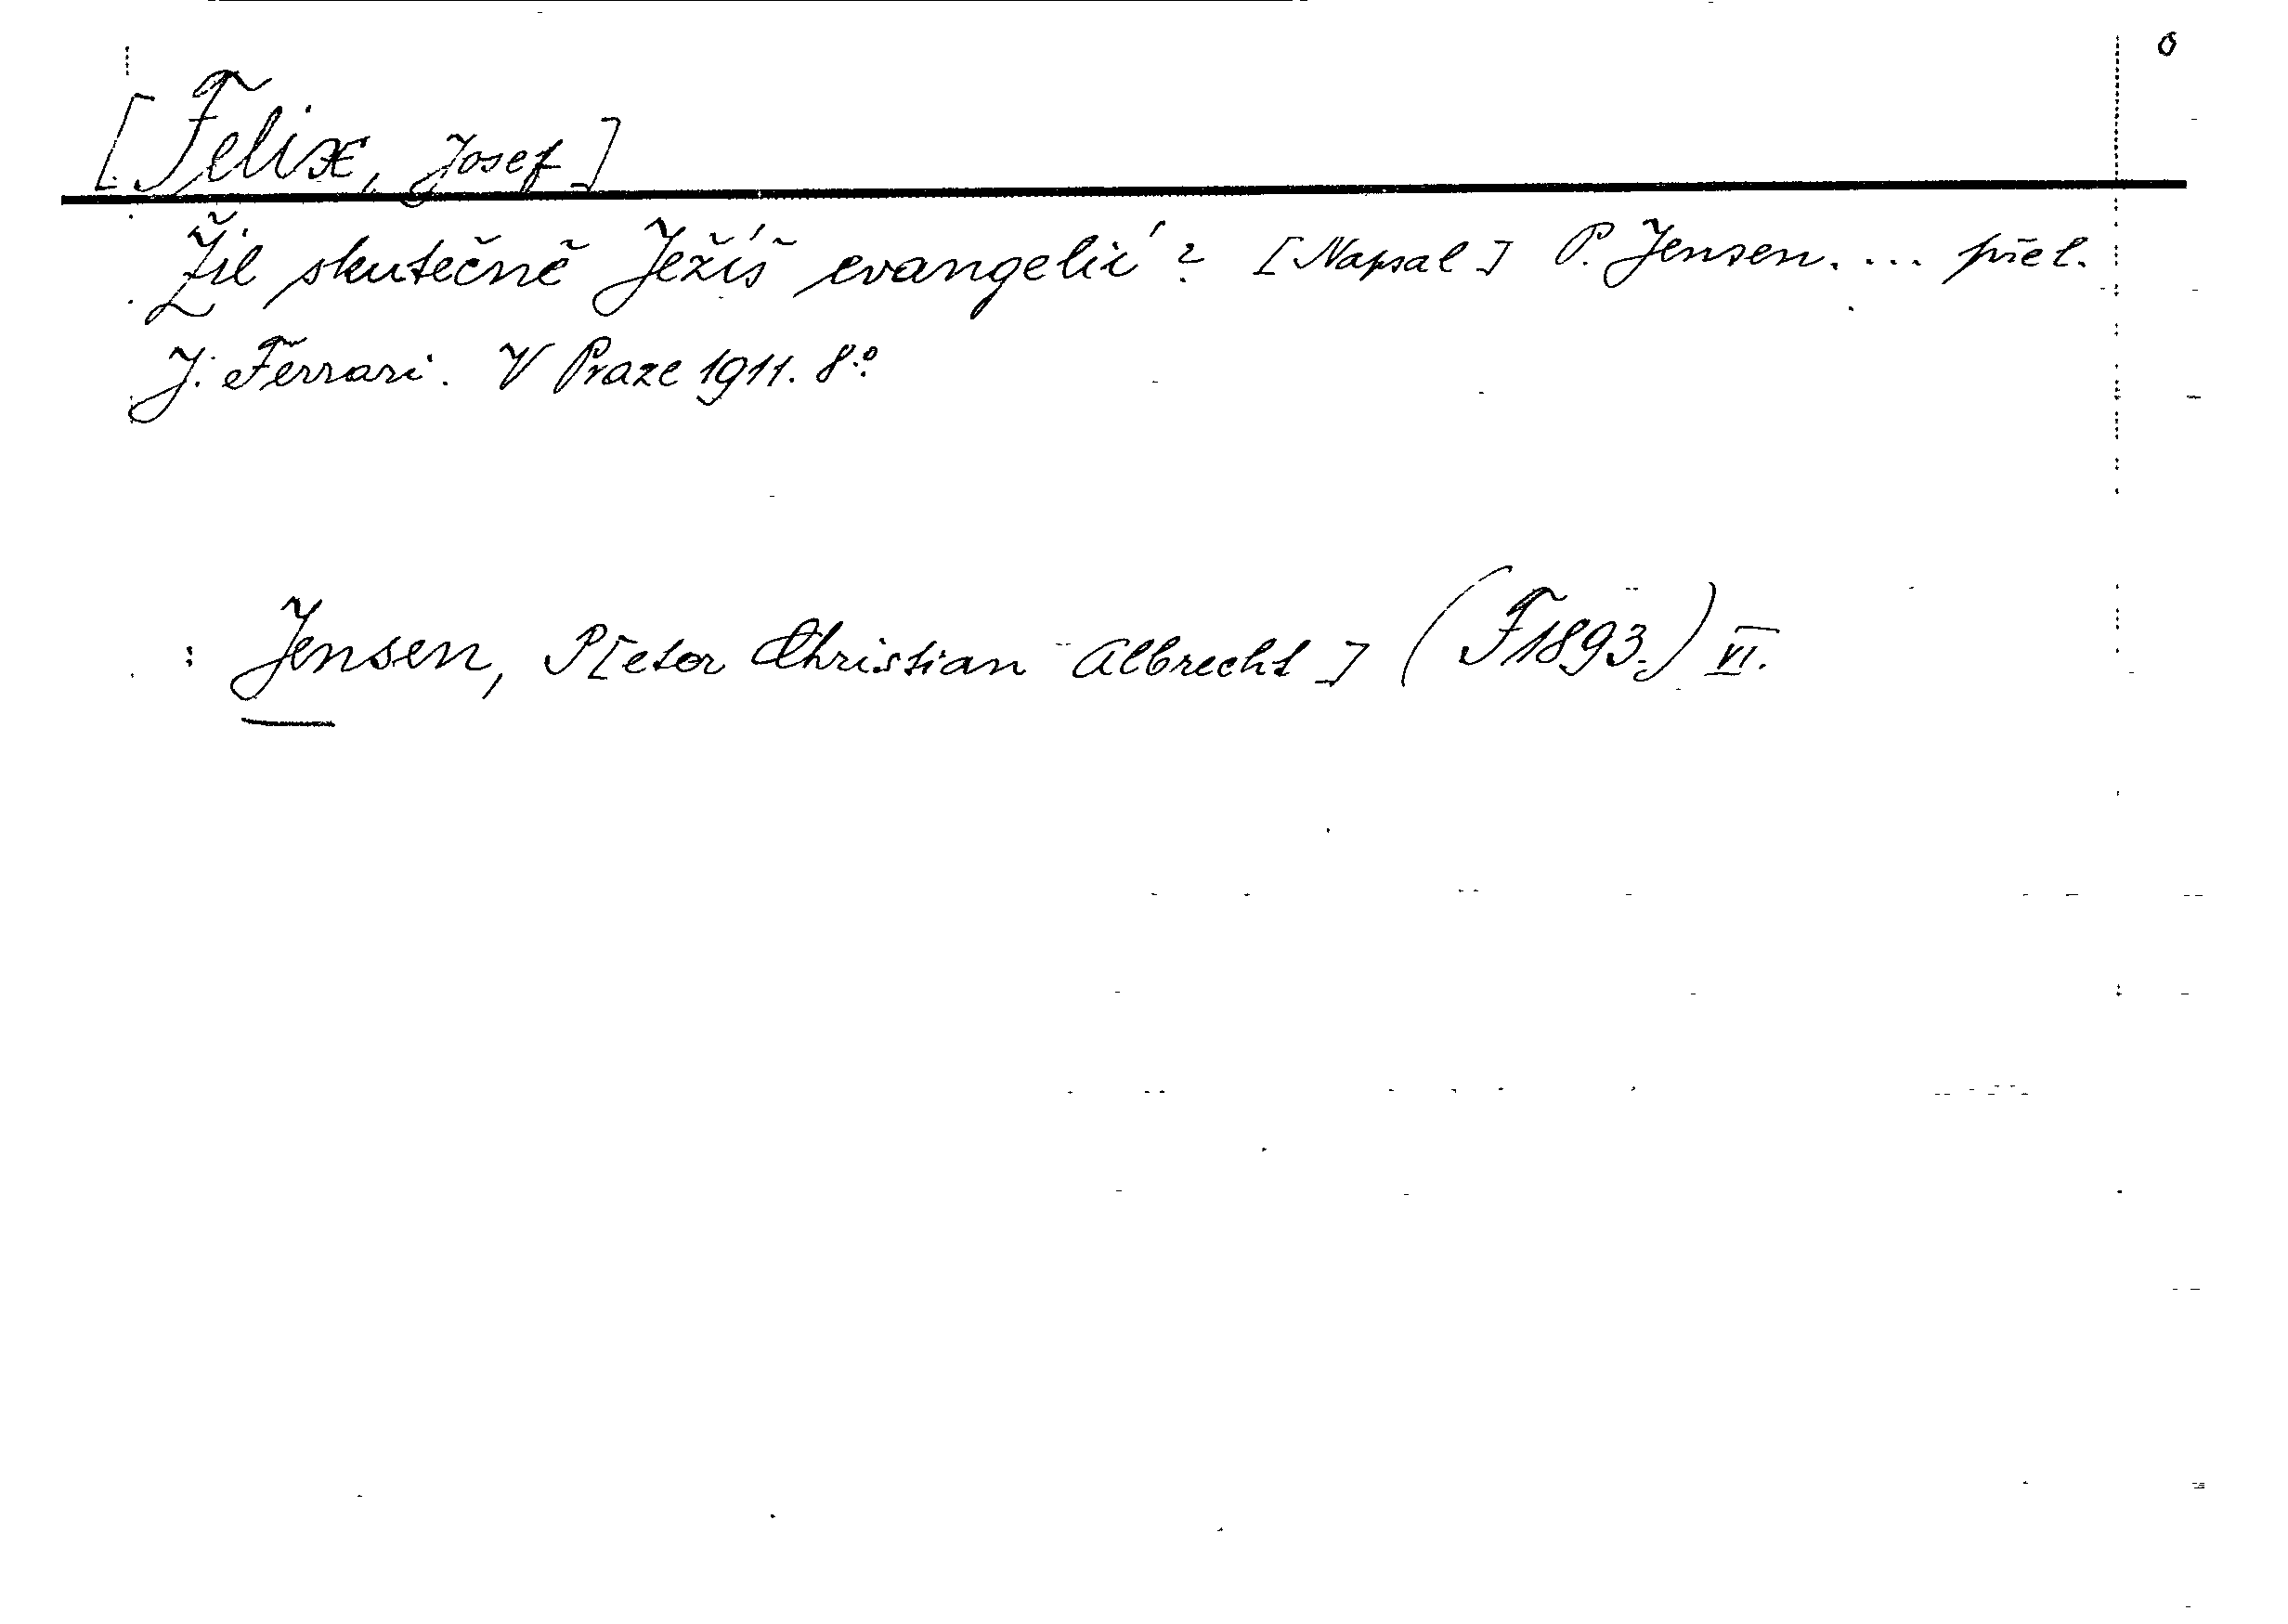 [Felix, Josef]
Žil skutečně Ježíš evangelií? [Napsal] P. Jensen. ... přel.
J. Ferrari. V Praze 1911. 8º
: Jensen, P[eter Christian Albrecht] (F1893.) VI.